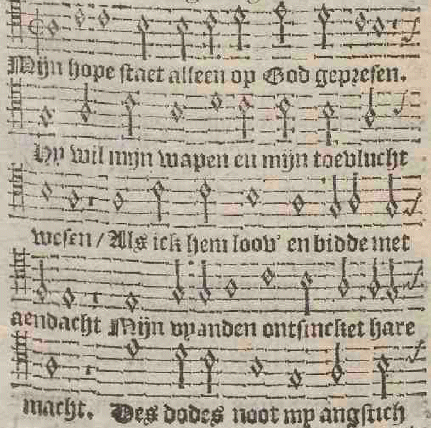 Mijn hope staet alleen op God gepresen.
Hy wil mijn wapen en mijn toevlucht
wesen / Als ick hem loov' en bidde met
aendacht Mijn vyanden ontsincket hare
macht. Des dodes noot my angstich